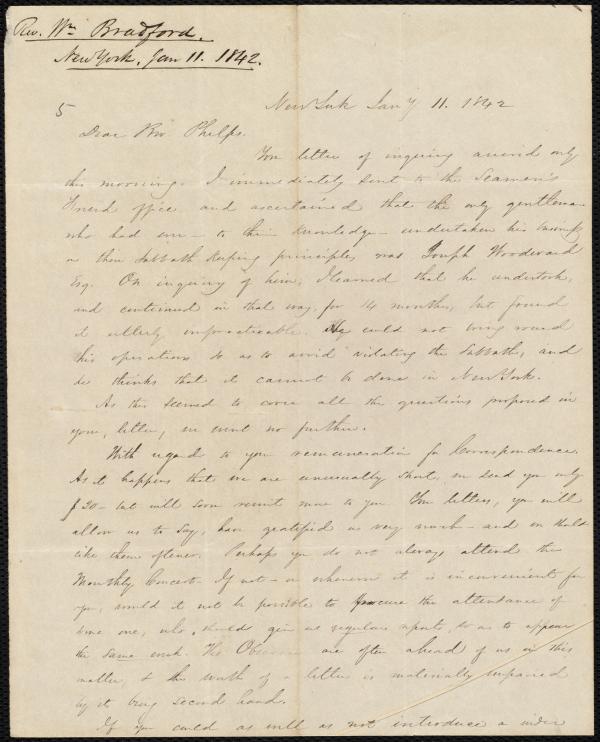 Rev. Wm Bradford.
New York, Jan 11. 1842.
New York Jany 11. 1842
5
Dear Bro. Phelps.
Your letter of inquiry arrived only
this morning. I immediately sent to the Seamen's
Friend office and ascertained that the only gentleman
who had ever - to their knowledge - undertaken his business
on those Sabbath keeping principles was Joseph Woodward
Esq. On inquiry of him, I learned that he undertook,
and continued in that way, for 14 months, but found
it utterly impracticable. He could not bring round
his operations so as to avoid violating the Sabbath, and
he thinks that it cannot be done in New York.
As this seemed to cover all the questions proposed in
your letter, we went no further.
With regard to your remuneration for Correspondence.
As it happens that we are unusually short, we send you only
$20 - but will soon remit more to you. Your letters, you will
allow us to say, have gratified us very much - and we should
like them oftener. Perhaps you do not always attend the
Monthly Concert - If not - or whenever it is inconvenient for
you, would it not be possible to procure the attendance of
some one, who should give us regular report, so as to appear
the same week. The Observer are often ahead of us in this
matter, & the worth of a letter is materially impaired
by its being second hand.
If you could as well as not introduce a wider